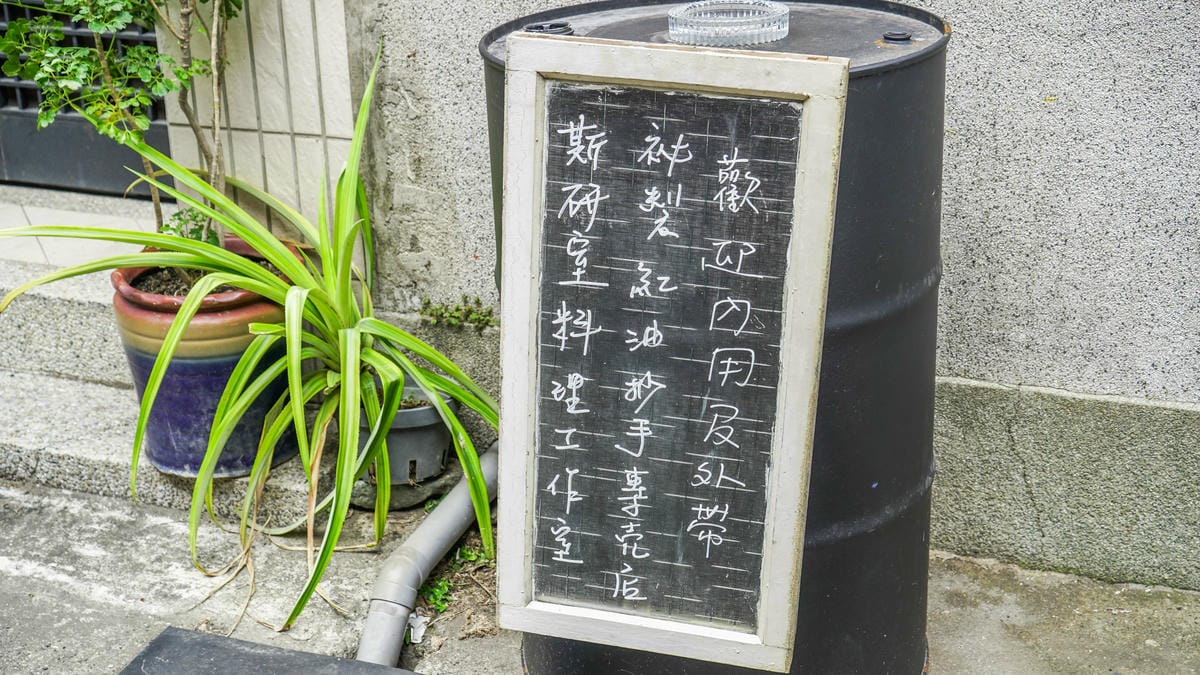 歡迎內用及外帶
祕製紅油抄手專売店
斯研室料理工作室